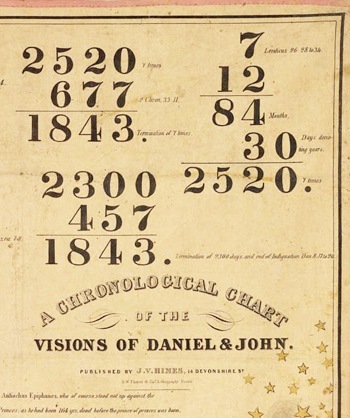 2520 7 times
677 2 Chron. 33. 11.
1843. Termination of 7 times
7 Leviticus 26
12
84 Months.
30 Days deno-
ting years.
2520. 7 times
2300
457
1843. Termination of 2300 days, and end of Indignation Dan. 8.
A CHRONOLOGICAL CHART
OF THE
VISIONS OF DANIEL & JOHN.
PUBLISHED BY J. V. HIMES, 14 DEVONSHIRE ST
B. W. Thayer & Co's Lithography Boston
Antiochus Epiphanes, who of course stood not up against the
Princes: as he had been 164 yrs. dead before the prince of princes was born.